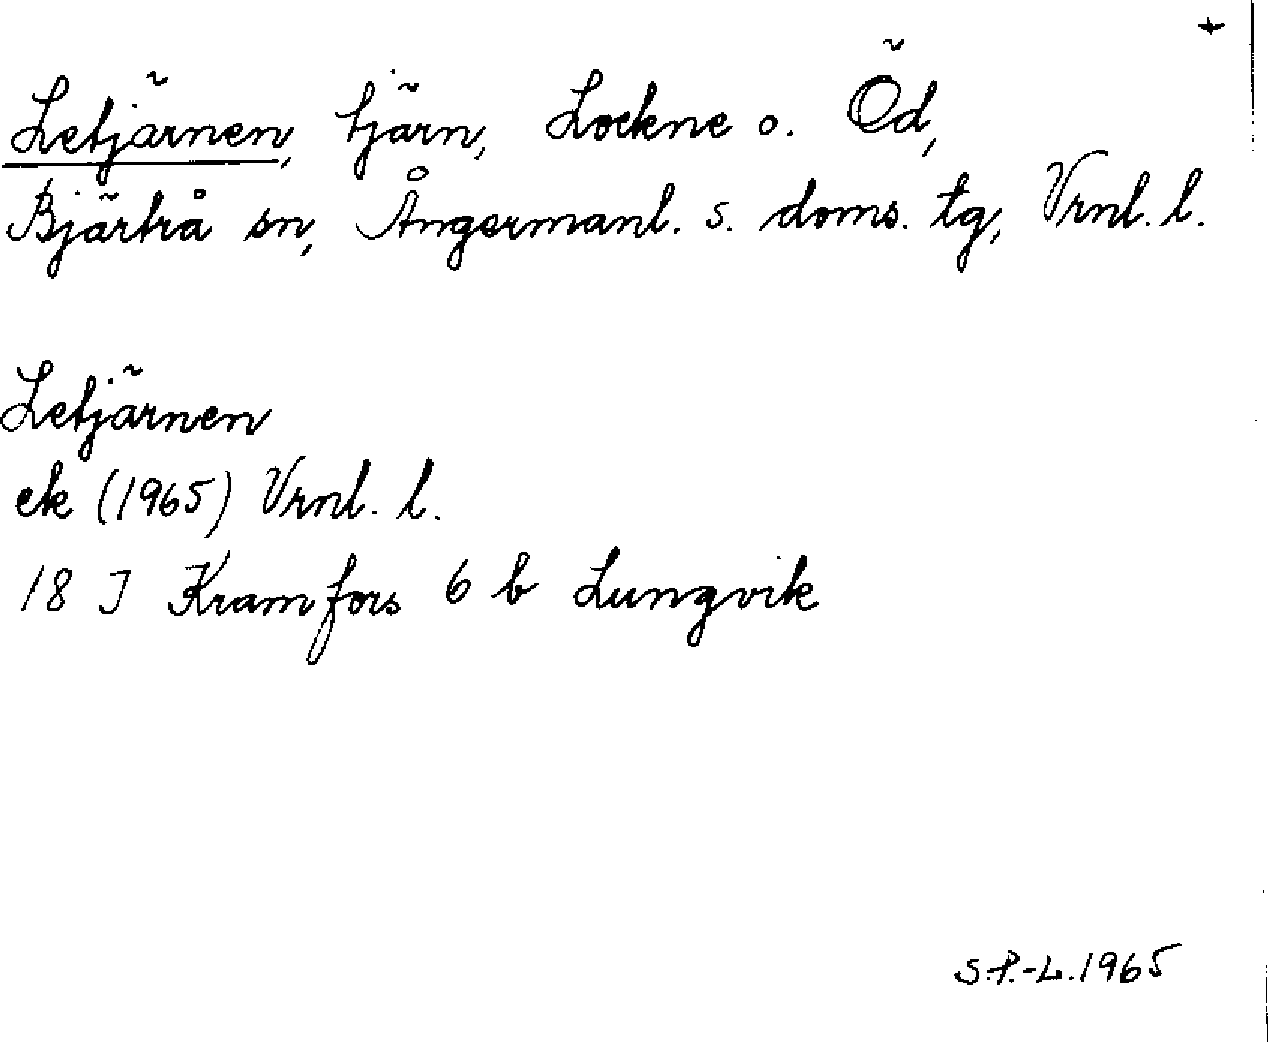 +
Letjärnen, tjärn, Lockne o. Öd,
Bjärtrå sn, Ångermanl. s. doms. tg, Vrnl. l.
Letjärnen
ek (1965) Vrnl. l.
18 J Kramfors 6 b Lungvik
S.P.-L. 1965